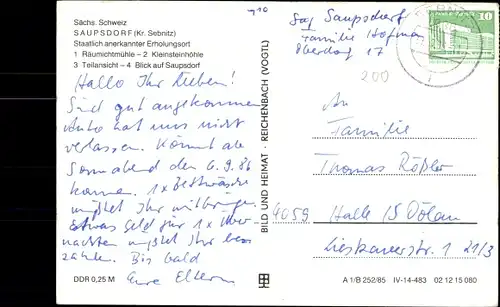 Sächs. Schweiz
SAUPSDORF (Kr. Sebnitz)
Staatlich anerkannter Erholungsort
1 Räumichtmühle – 2 Kleinsteinhöhle
3 Teilansicht – 4 Blick auf Saupsdorf
Hallo Ihr Lieben!
Sind gut angekommen
Auto hat uns nicht
verlassen. Könnt ab
Sonnabend den 6.9.86
kommen. 1x Bettwäsche
müßt Ihr mitbringen
Etwas Geld für 1x Über-
nachten müßt Ihr be-
zahlen. Bis bald
Eure Eltern
DDR 0,25 M
BILD UND HEIMAT · REICHENBACH (VOGTL)
Saupsdorf
Familie Hofmann
17
200
10
An
Familie
Thomas Rößler
4059 Halle 15 Dölau
21/3
A 1/B 252/85 IV-14-483 02 12 15 080